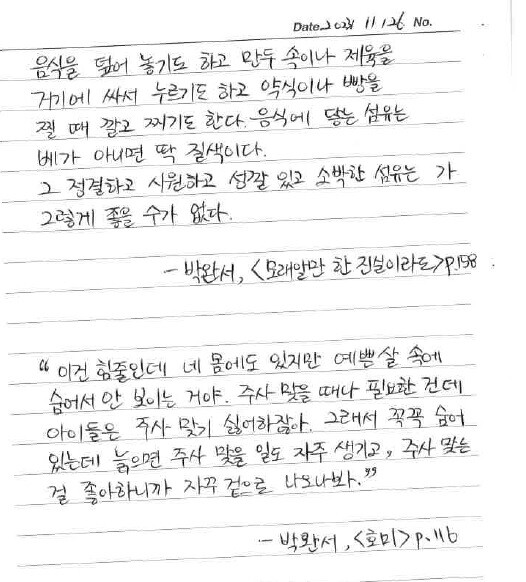 Date. 2023 11 / 26 No.
음식을 덮어 놓기도 하고 만두 속이나 제육을
거기에 싸서 누르기도 하고 약식이나 빵을
찔 때 깔고 찌기도 한다. 음식에 닿는 섬유는
베가 아니면 딱 질색이다.
그 정결하고 시원하고 성깔 있고 소박한 섬유는 가
그렇게 좋을 수가 없다.
- 박완서, <모래알만 한 진실이라도> p.158
“이건 힘줄인데 네 몸에도 있지만 예쁜 살 속에
숨어서 안 보이는 거야. 주사 맞을 때나 필요한 건데
아이들은 주사 맞기 싫어하잖아. 그래서 꼭꼭 숨어
있는데 늙으면 주사 맞을 일도 자주 생기고, 주사 맞는
걸 좋아하니까 자꾸 겉으로 나오나봐.”
- 박완서, <호미> p.116